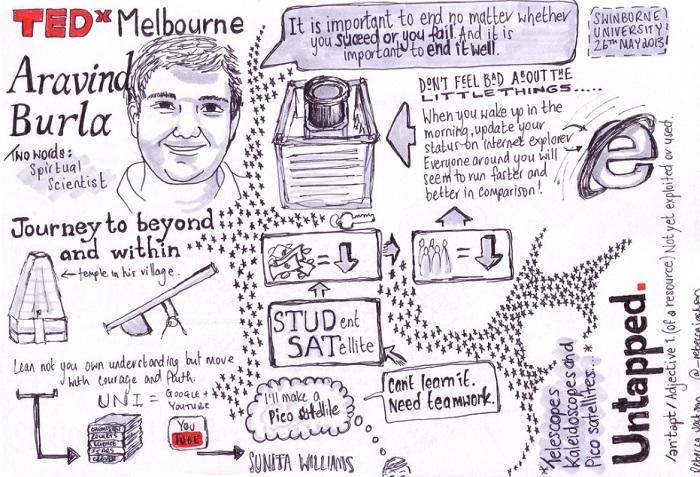 TEDx Melbourne
It is important to end no matter whether
you succeed or you fail. And it is
important to end it well.
SWINBORNE
UNIVERSITY
26TH MAY 2013
Aravind
Burla
TWO WORDS:
Spirtual
Scientist
DON'T FEEL BAD ABOUT THE
LITTLE THINGS.....
When you wake up in the
morning, update your
status on internet explorer
Everyone around you will
seem to run faster and
better in comparison!
e
Journey to beyond
and within
temple in his village.
=
=
STUDent
SATellite
Lean not you own understanding but move
with courage and faith.
UNI = GOOGLE +
YOUTUBE
ROCKETS
SCIENCE
STARS
You
TUBE
I'll make a
Pico satellite
Cant learn it.
Need teamwork.
SUNITA WILLIAMS
*Telescopes
Kaleidoscopes and
Pico satellites...*
Untapped.
/antapt/Adjective 1.(of a resource) Not yet exploited or used.